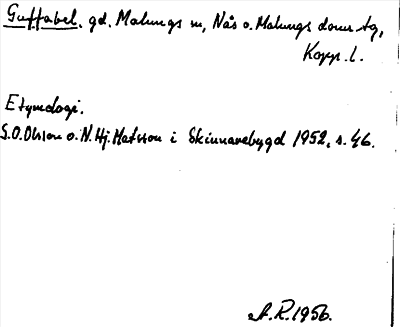 Guffabel. gd. Malungs sn, Nås o. Malungs doms.tg,
Kopp. l.
Etymologi.
S.O. Olsson o. N. Hj. Matsson i Skinnarebygd 1952, s. 46.
A.R. 1956.